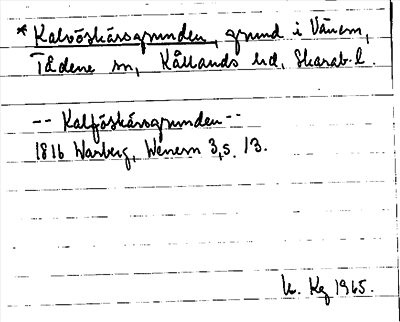 * Kalvöskärsgrunden, grund i Vänern,
Tådene sn, Kållands hd, Skarab. l.
-- Kalföskärsgrunden --
1816 Warberg, Wenern 3, s. 13.
Kg 1965.